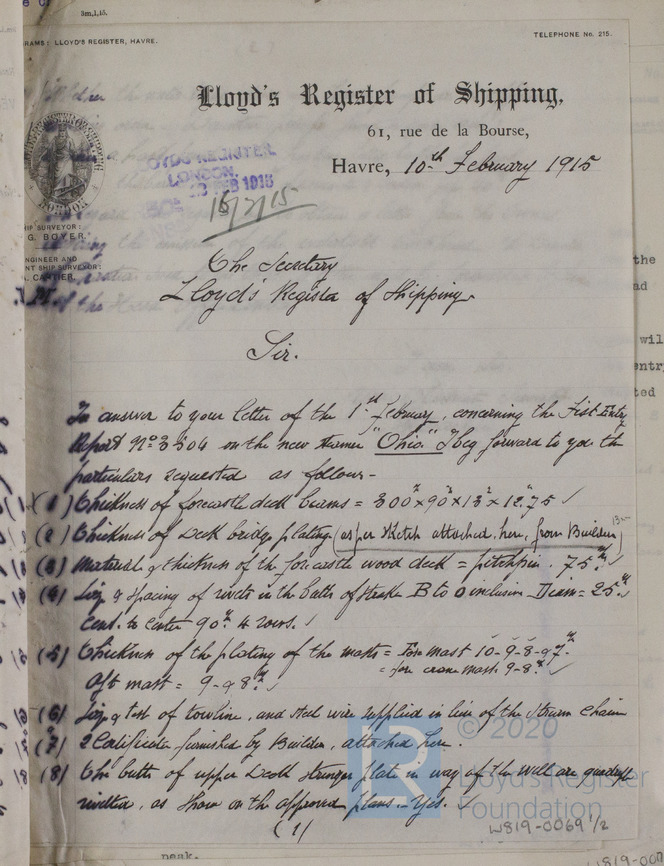 3m,1,15.
RAMS: LLOYD'S REGISTER, HAVRE.
TELEPHONE No. 215.
Lloyd's Register of Shipping,
61, rue de la Bourse,
Havre, 10th February 1915
LLOYD'S REGISTER,
LONDON.
FEB 1915
15/2/15
SHIP SURVEYOR:
G. BOYER.
ENGINEER AND
SHIP SURVEYOR:
CARTIER.
The Secretary
Lloyd's Register of Shipping
Sir.
In answer to your letter of the 1st February, concerning the First Entry
Report No 3304 on the new steamer "Ohio." I beg forward to you the
particulars requested as follows -
(1) Thickness of forecastle deck beams = 300 × 90 × 13 × 12,75 ✓
(2) Thickness of Deck bridge plating (as per sketch attached here, from Builders)
(3) Material & thickness of the forecastle wood deck = pitchpin. 75 ✓
(4) Size & spacing of rivets in the butts of strake B to O inclusive Diam = 25
Cent. to Center 90 4 rows. ✓
(5) Thickness of the plating of the masts = Fore mast 10-9-8-97
= for crane mast 9-8 ✓
Aft mast = 9-98 ✓
(6) Size & test of towline, and steel wire supplied in lieu of the stream chain
(7) 2 Certificates furnished by Builders, attached here.
(8) The butts of upper Deck stringer plate in way of the Well are
rivetted, as show on the approved plans. Yes. ✓
(1)
© 2020
Lloyd's Register
Foundation
W819-0069 1/2
the
wil
entry
ted
peak.